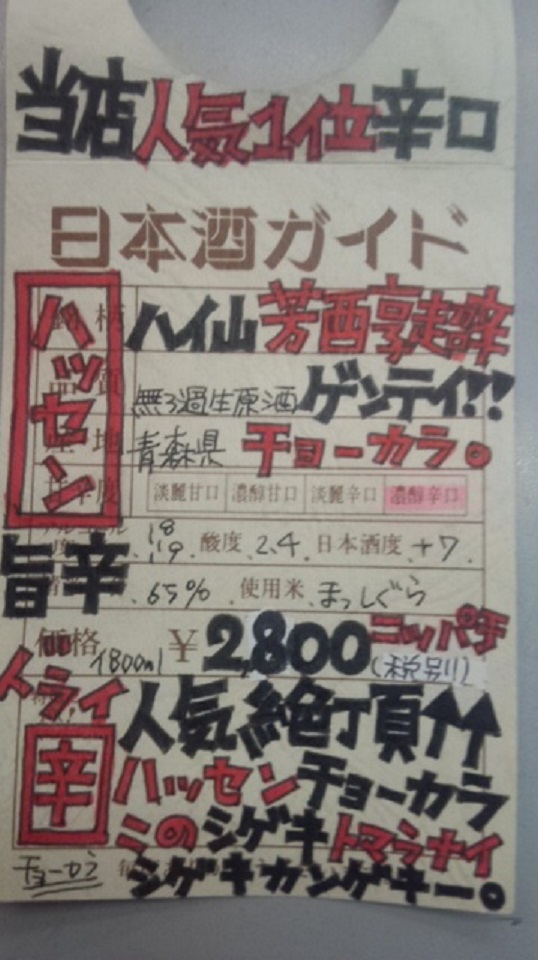 当店人気1位辛口
日本酒ガイド
ハッセン
ハイ山芳酉享超辛
無ろ過生原酒ゲンテイ!!
青森県チョーカラ。
淡麗甘口 濃醇甘口 淡麗辛口 濃醇辛口
18 19 酸度 2.4 日本酒度 +7
旨辛
65% 使用米 まっしぐら
価格 1800ml ¥2,800 ニッパチ
(税別!!)
トライ
人気絶丁頁↑↑
辛
ハッセンチョーカラ
ミのシゲキトマラナイ
チョーカラ
シゲキカンゲキー。